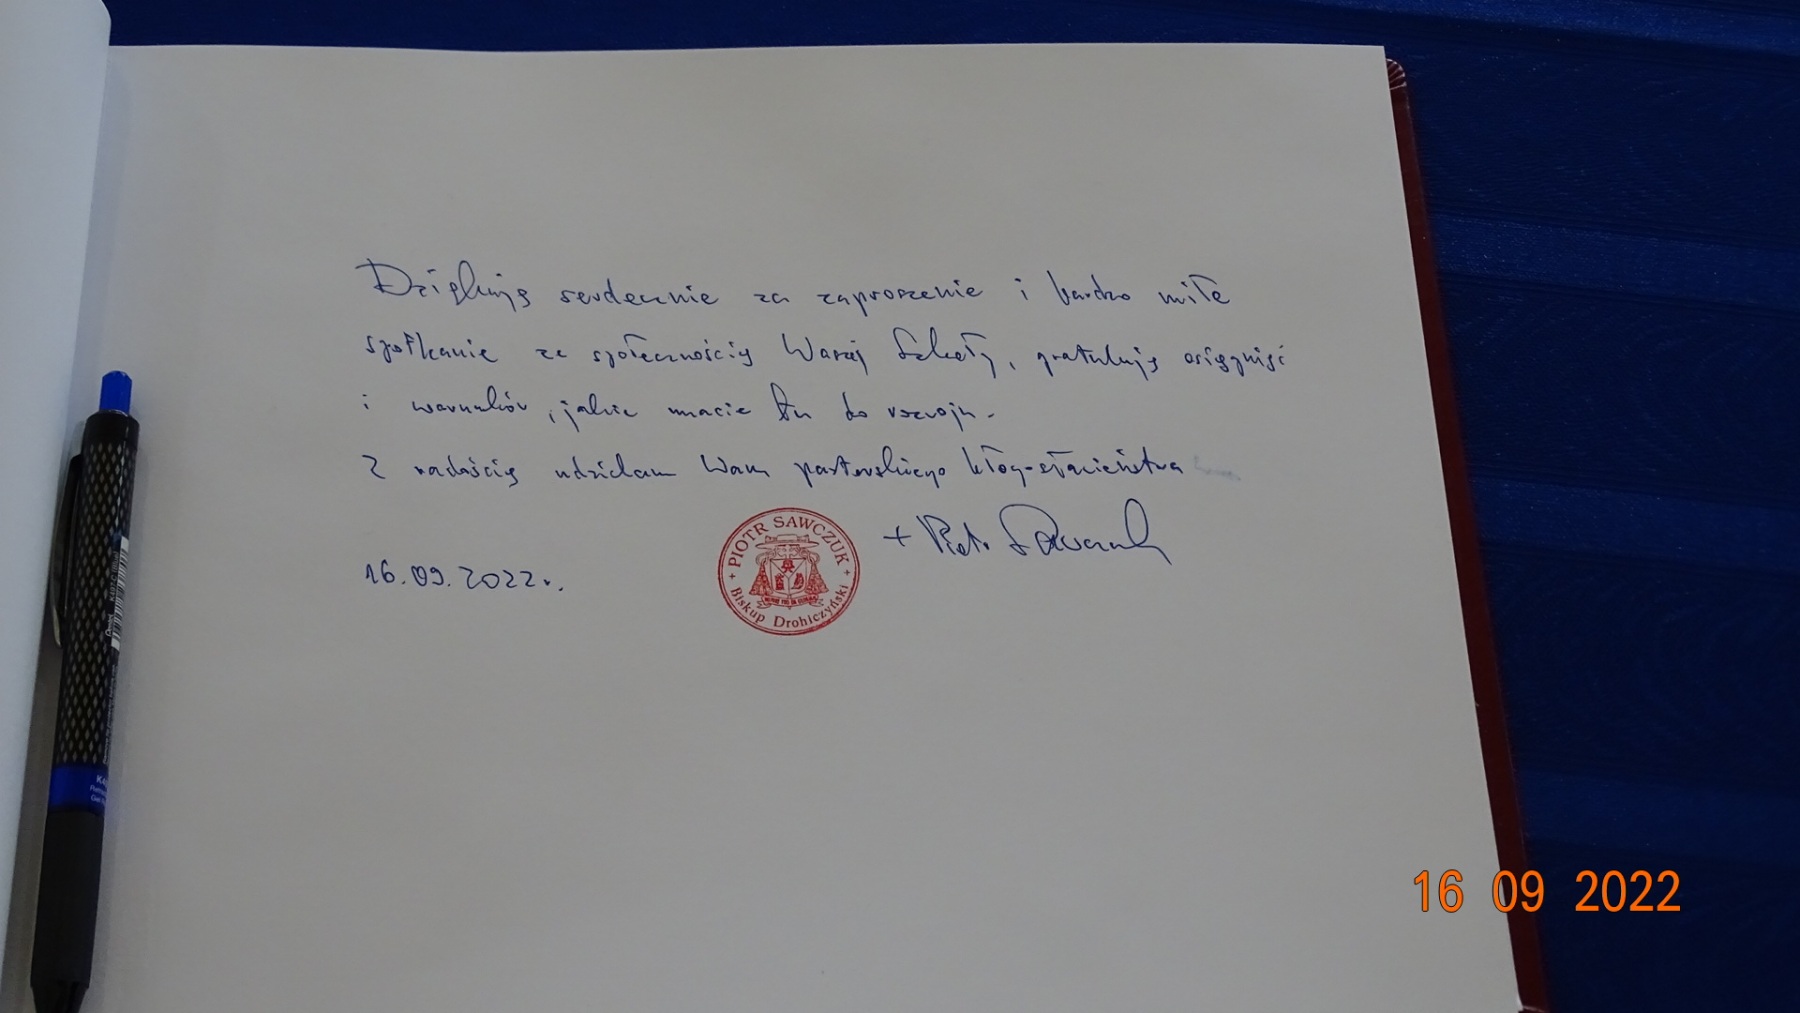 Dziękuję serdecznie za zaproszenie i bardzo miłe
spotkanie ze społecznością Waszej Szkoły, gratuluję osiągnięć
i warunków, jakie macie tu do rozwoju.
Z radością udzielam Wam pasterskiego błogosławieństwa
+ Piotr Sawczuk
16.09.2022r.
PIOTR SAWCZUK
Biskup Drohiczyński
16 09 2022